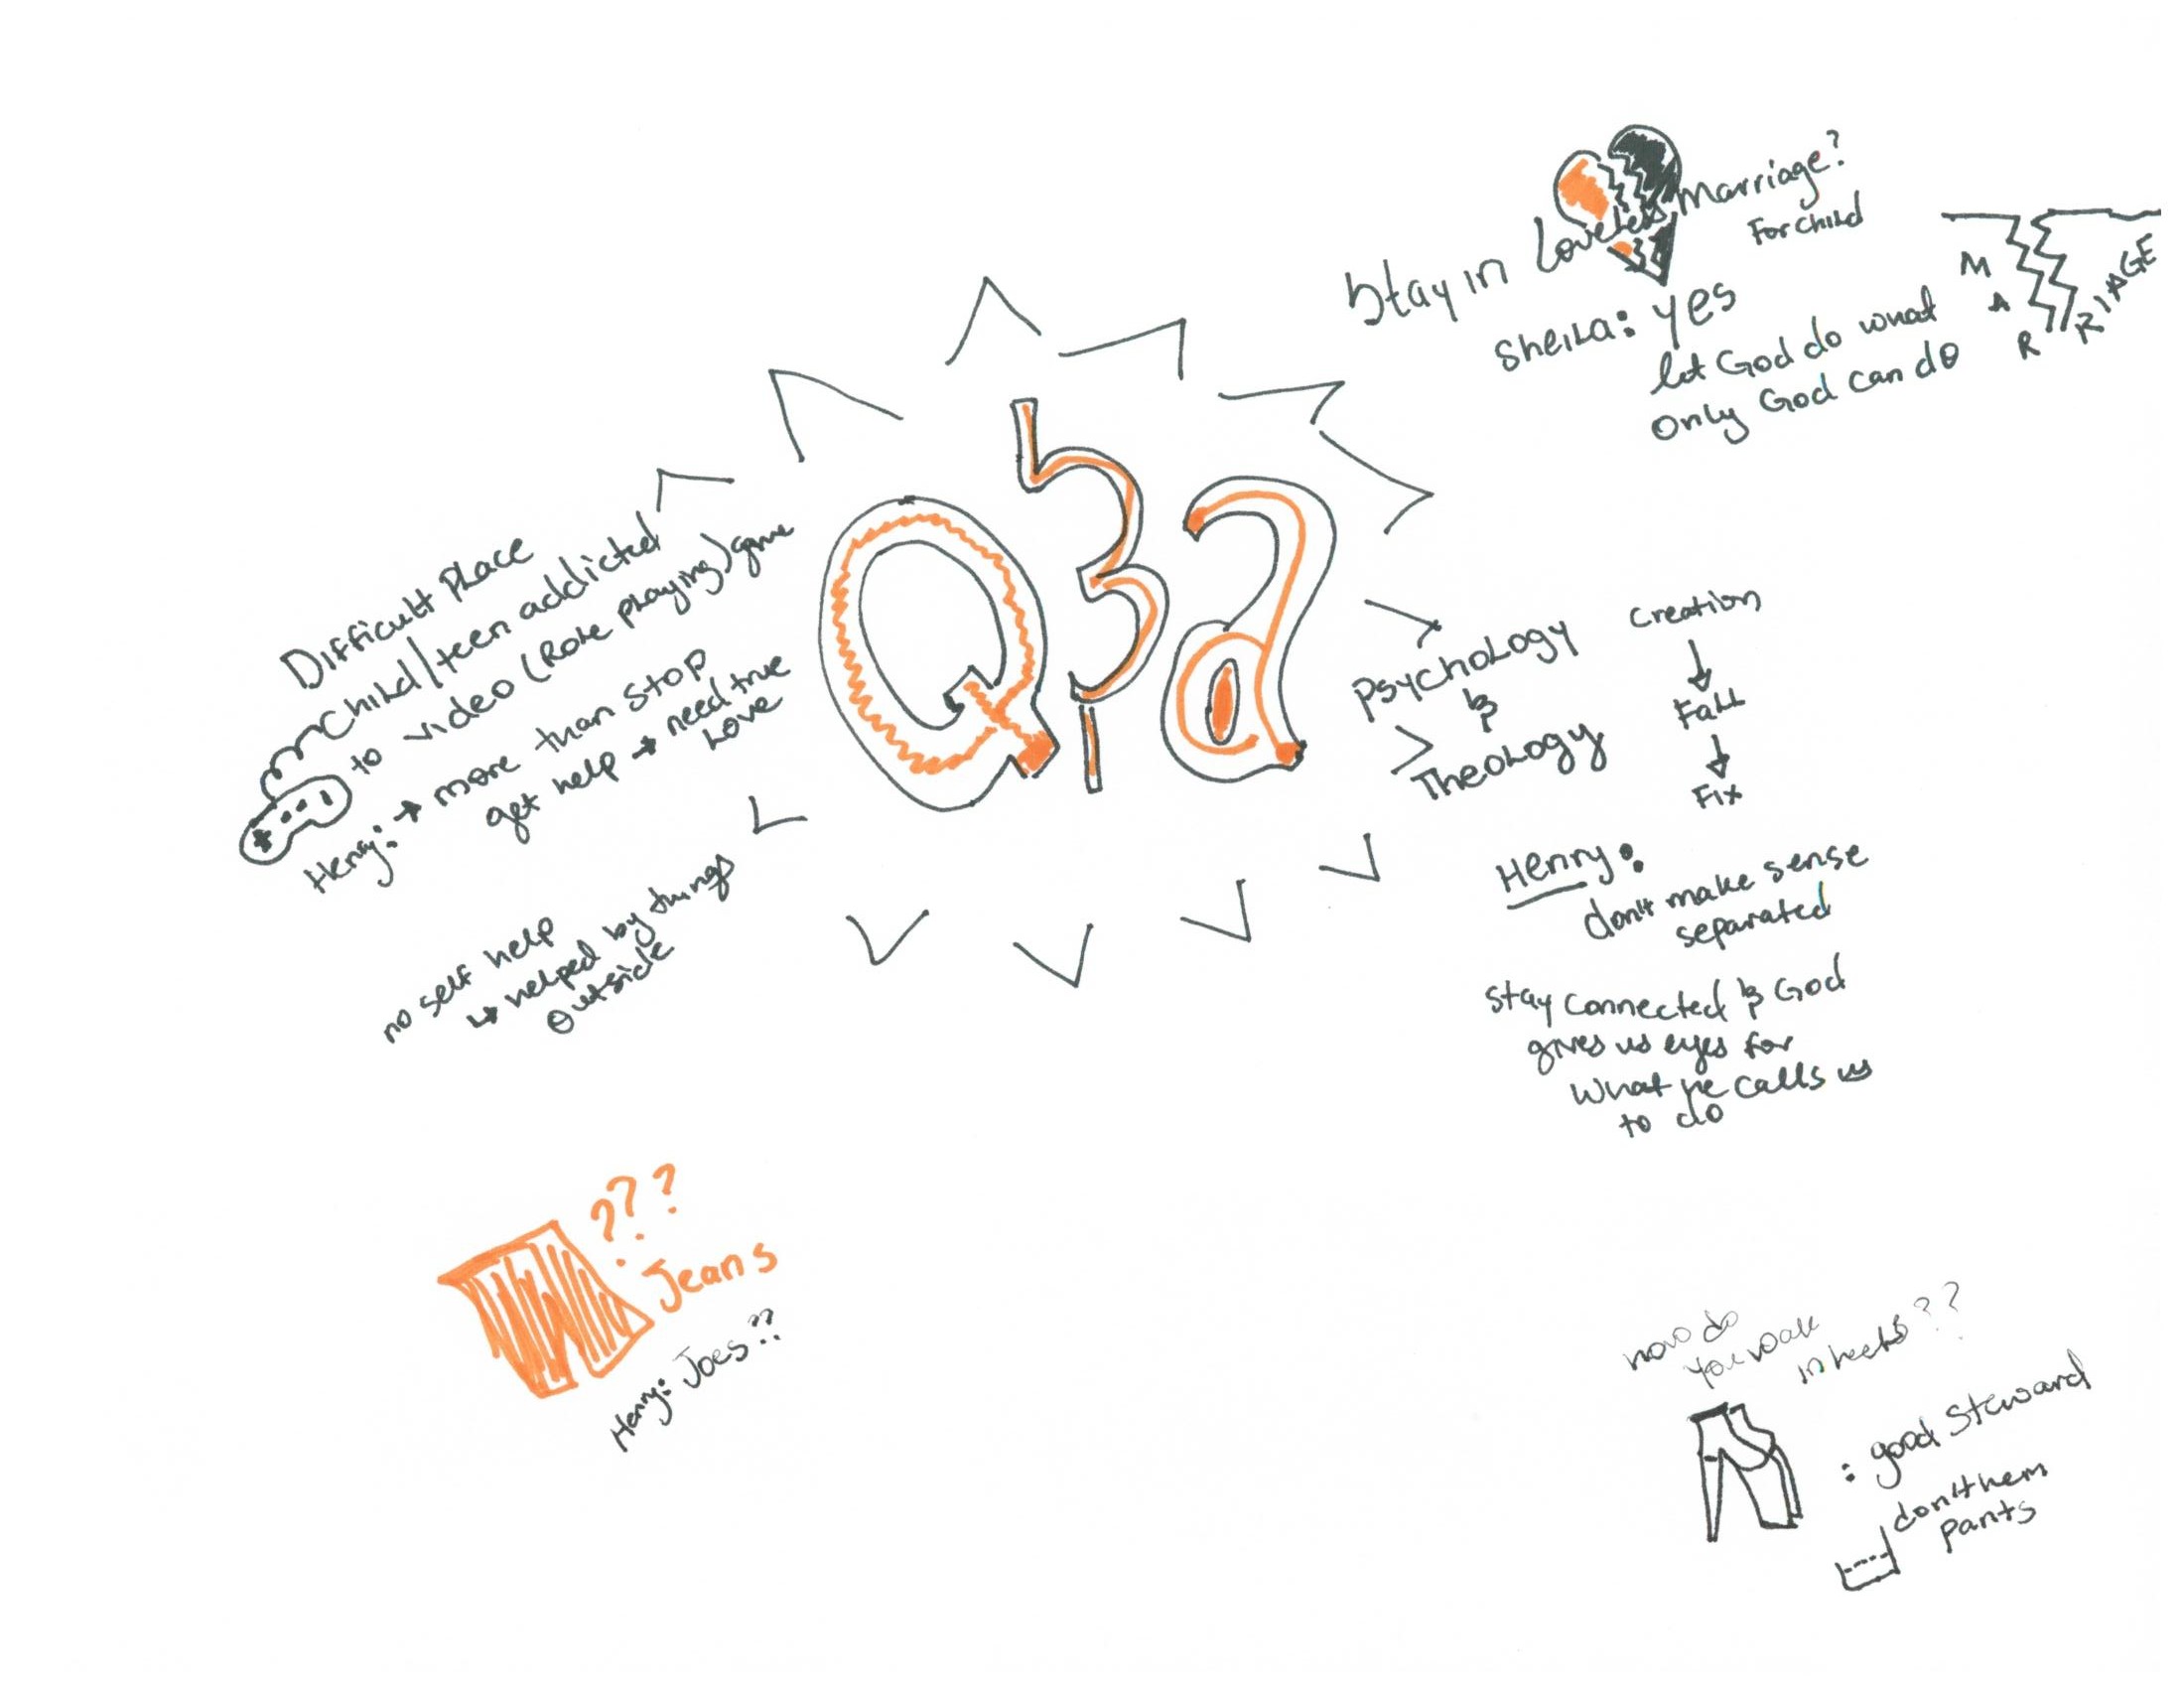 Q & a
Stay in Loveless Marriage?
For child
Sheila: yes
let God do what
only God can do
MARRIAGE
Difficult Place
Child/teen addicted
to video (Role playing) game
Henry: → more than stop
get help → need true
love
no self help
↳ helped by things
outside
Psychology
&
Theology
Creation
↓
Fall
↓
Fix
Henry:
don't make sense
separated
Stay connected & God
gives us eyes for
what he calls us
to do
???
Jeans
Henry: Joes??
how do
you walk
in heels??
: good Steward
don't hem
pants